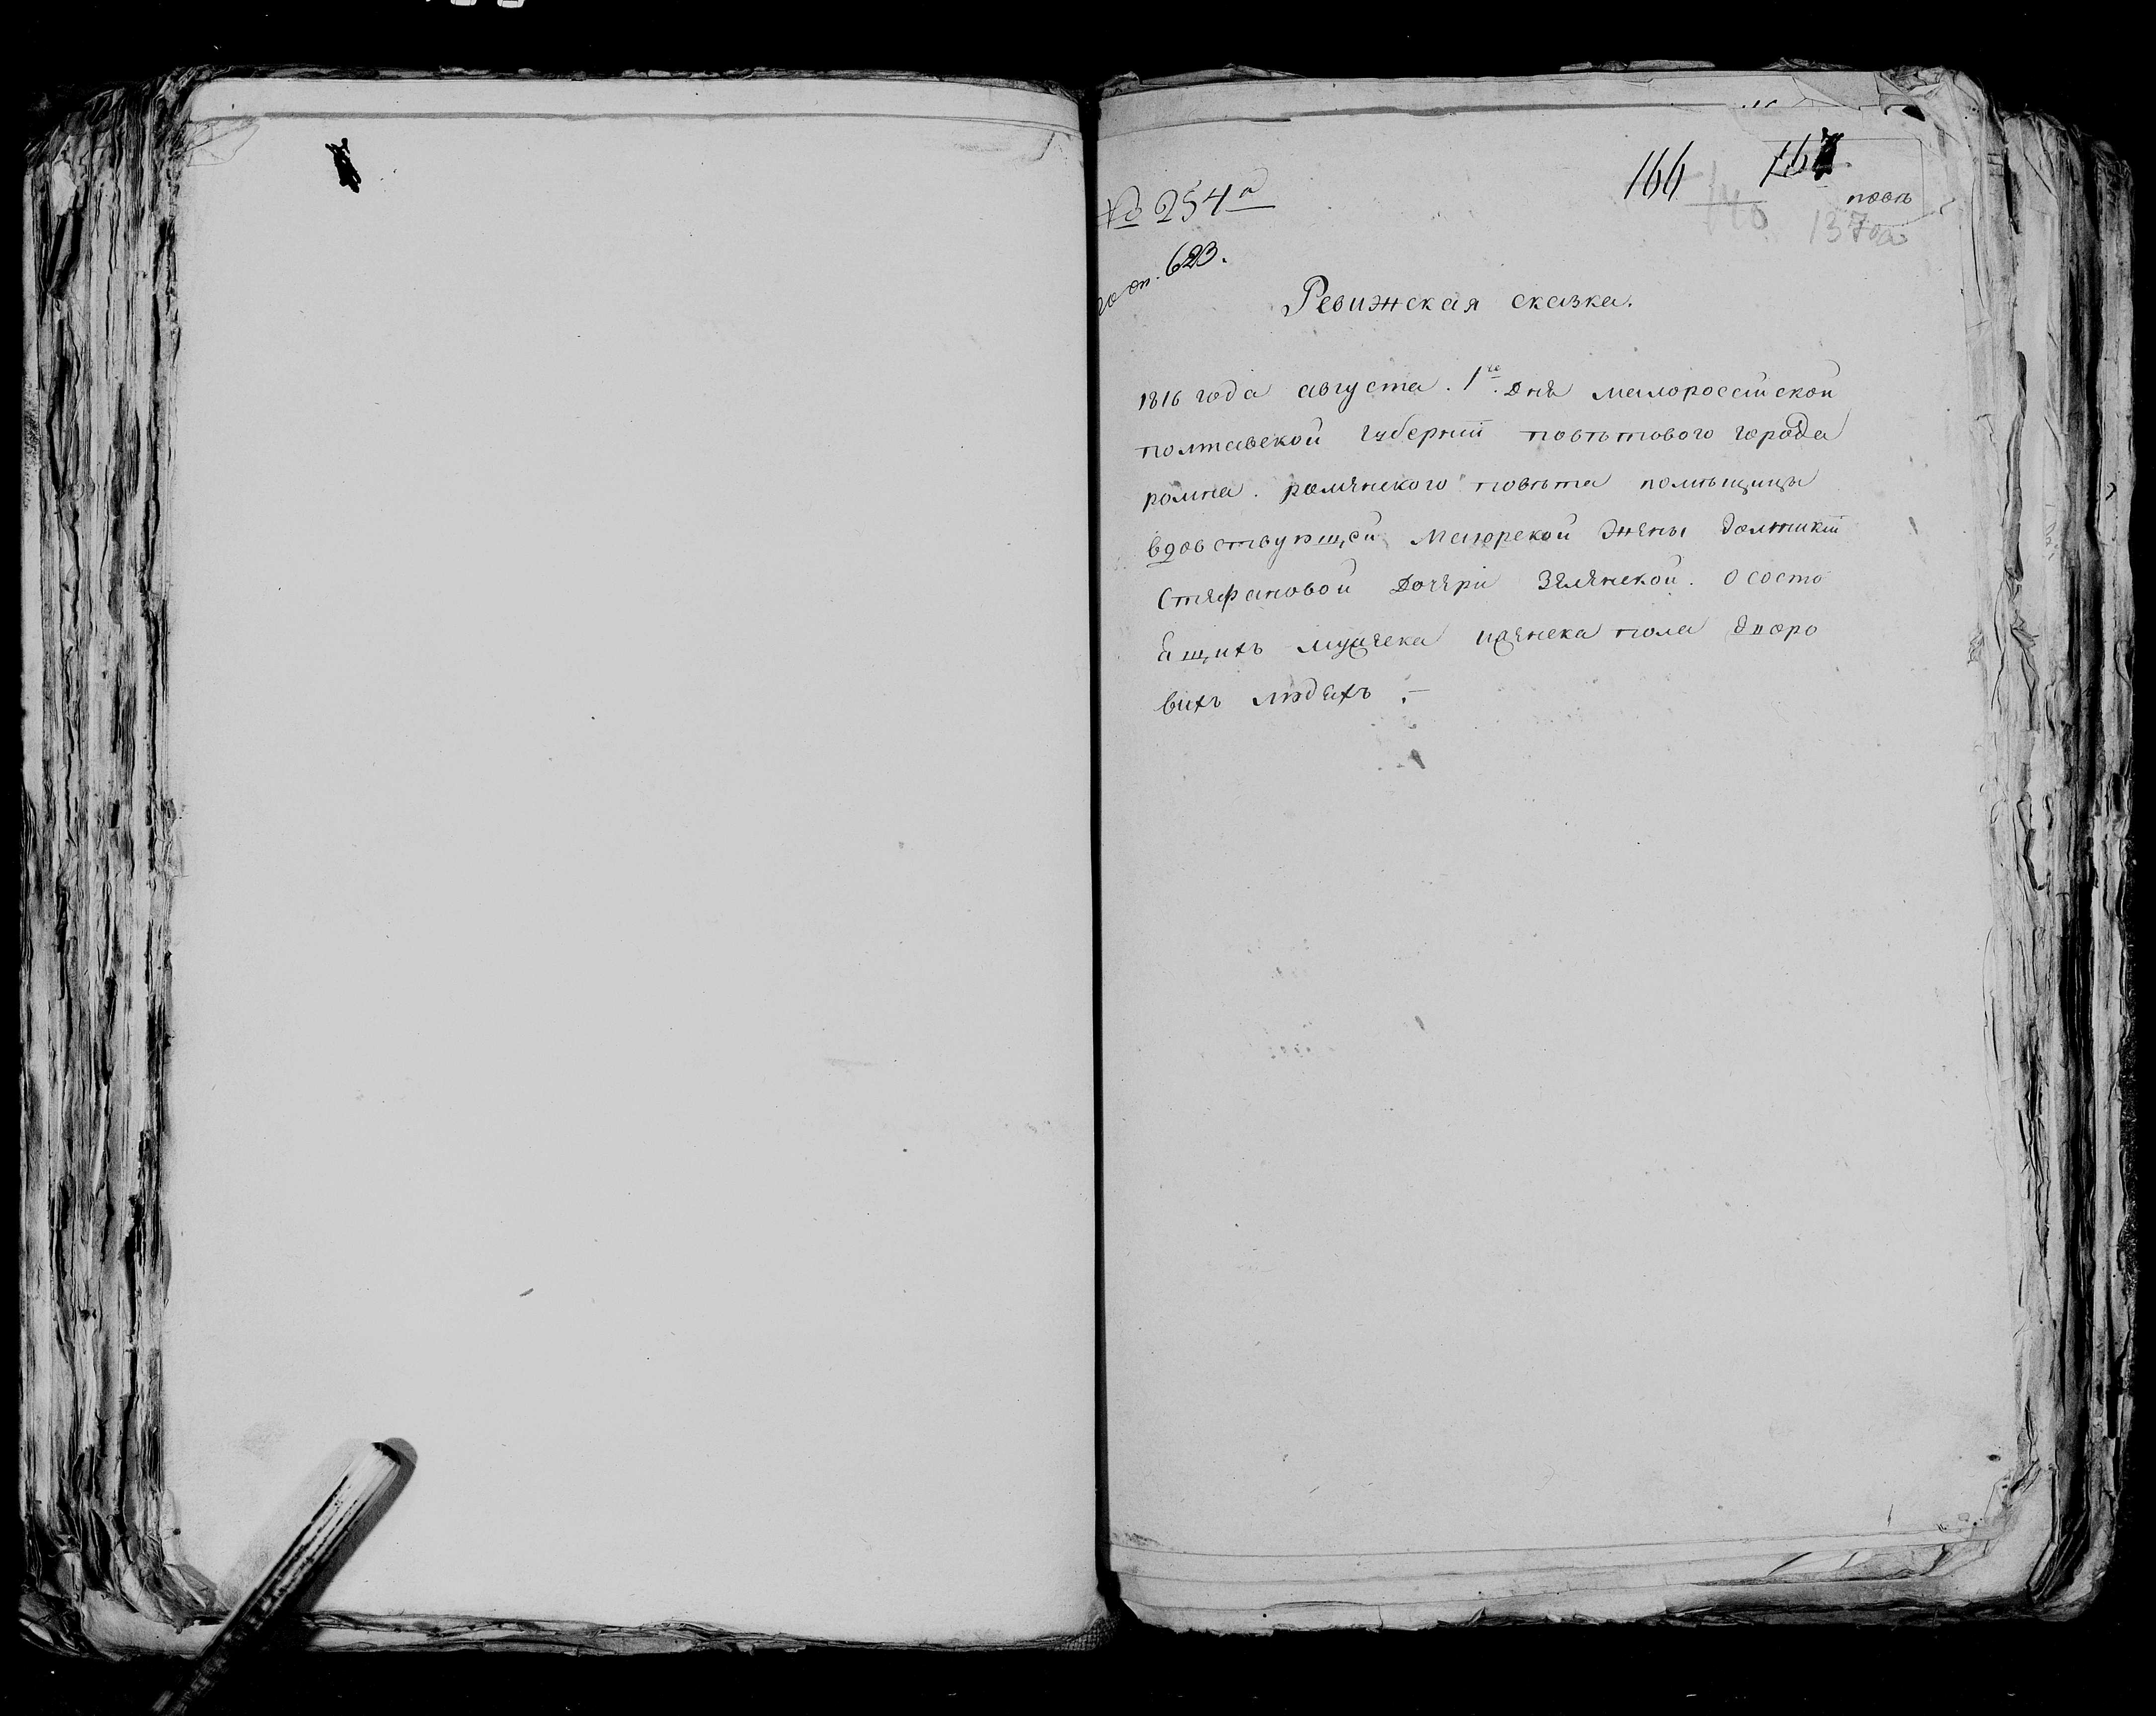 № 254й
166
повѣ
по оп. 623.
Ревижская сказка.
1816 года августа. 1го. дня малоросеійской
полтавской губерніи повѣтового города
ромна. роменского повѣта помѣщицы
вдовствующей маіорской жены
Стефановой дочери Зеленской. О состо
ящихъ мужеска иженска пола дворо
вихъ людехъ. —